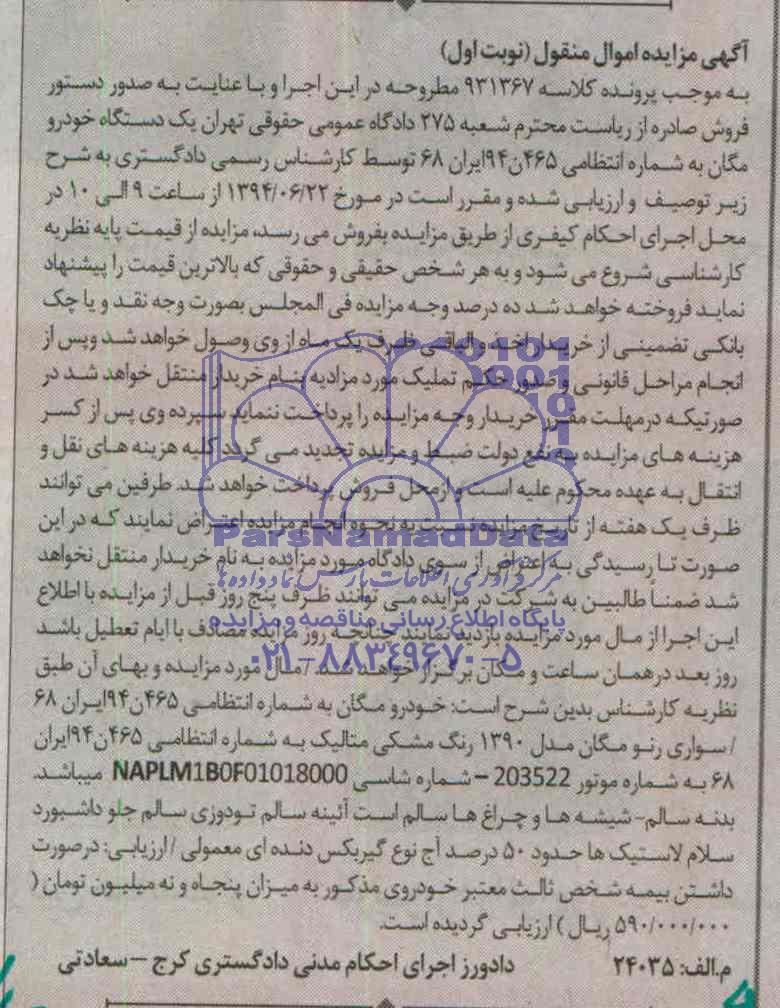 آگهی مزایده اموال منقول (نوبت اول)
به موجب پرونده کلاسه ۹۳۱۳۶۷ مطروحه در این اجرا و با عنایت به صدور دستور
فروش صادره از ریاست محترم شعبه ۲۷۵ دادگاه عمومی حقوقی تهران یک دستگاه خودرو
مگان به شماره انتظامی ۴۶۵ن۹۴ایران ۶۸ توسط کارشناس رسمی دادگستری به شرح
زیر توصیف و ارزیابی شده و مقرر است در مورخ ۱۳۹۴/۰۶/۲۲ از ساعت ۹ الی ۱۰ در
محل اجرای احکام کیفری از طریق مزایده بفروش می رسد، مزایده از قیمت پایه نظریه
کارشناسی شروع می شود و به هر شخص حقیقی و حقوقی که بالاترین قیمت را پیشنهاد
نماید فروخته خواهد شد ده درصد وجه مزایده فی المجلس بصورت وجه نقد و یا چک
بانکی تضمینی از خریدار اخذ و الباقی ظرف یک ماه از وی وصول خواهد شد وپس از
انجام مراحل قانونی و صدور حکم تملیک مورد مزادیه بنام خریدار منتقل خواهد شد در
صورتیکه درمهلت مقرر خریدار وجه مزایده را پرداخت ننماید سپرده وی پس از کسر
هزینه های مزایده به نفع دولت ضبط و مزایده تجدید می گردد کلیه هزینه های نقل و
انتقال به عهده محکوم علیه است و ازمحل فروش پرداخت خواهد شد. طرفین می توانند
ظرف یک هفته از تاریخ مزایده نسبت به نحوه انجام مزایده اعتراض نمایند که در این
صورت تا رسیدگی به اعتراض از سوی دادگاه مورد مزایده به نام خریدار منتقل نخواهد
شد ضمناً طالبین به شرکت در مزایده می توانند ظرف پنج روز قبل از مزایده با اطلاع
این اجرا از مال مورد مزایده بازدید نمایند چنانچه روز مزایده مصادف با ایام تعطیل باشد
روز بعد درهمان ساعت و مکان برگزار خواهد شد. / مال مورد مزایده و بهای آن طبق
نظریه کارشناس بدین شرح است: خودرو مگان به شماره انتظامی ۴۶۵ن۹۴ایران ۶۸
/ سواری رنو مگان مدل ۱۳۹۰ رنگ مشکی متالیک به شماره انتظامی ۴۶۵ن۹۴ایران
۶۸ به شماره موتور 203522 – شماره شاسی NAPLM1B0F01018000 میباشد.
بدنه سالم- شیشه ها و چراغ ها سالم است آئینه سالم تودوزی سالم جلو داشبورد
سلام لاستیک ها حدود ۵۰ درصد آج نوع گیربکس دنده ای معمولی / ارزیابی: درصورت
داشتن بیمه شخص ثالث معتبر خودروی مذکور به میزان پنجاه و نه میلیون تومان (
۵۹۰/۰۰۰/۰۰۰ ریال ) ارزیابی گردیده است.
م.الف: ۲۴۰۳۵ دادورز اجرای احکام مدنی دادگستری کرج – سعادتی
ParsNamadData
مرکز فرآوری اطلاعات پارس نماد داده ها
پایگاه اطلاع رسانی مناقصه و مزایده
۰۲۱-۸۸۳۴۹۶۷۰-۵